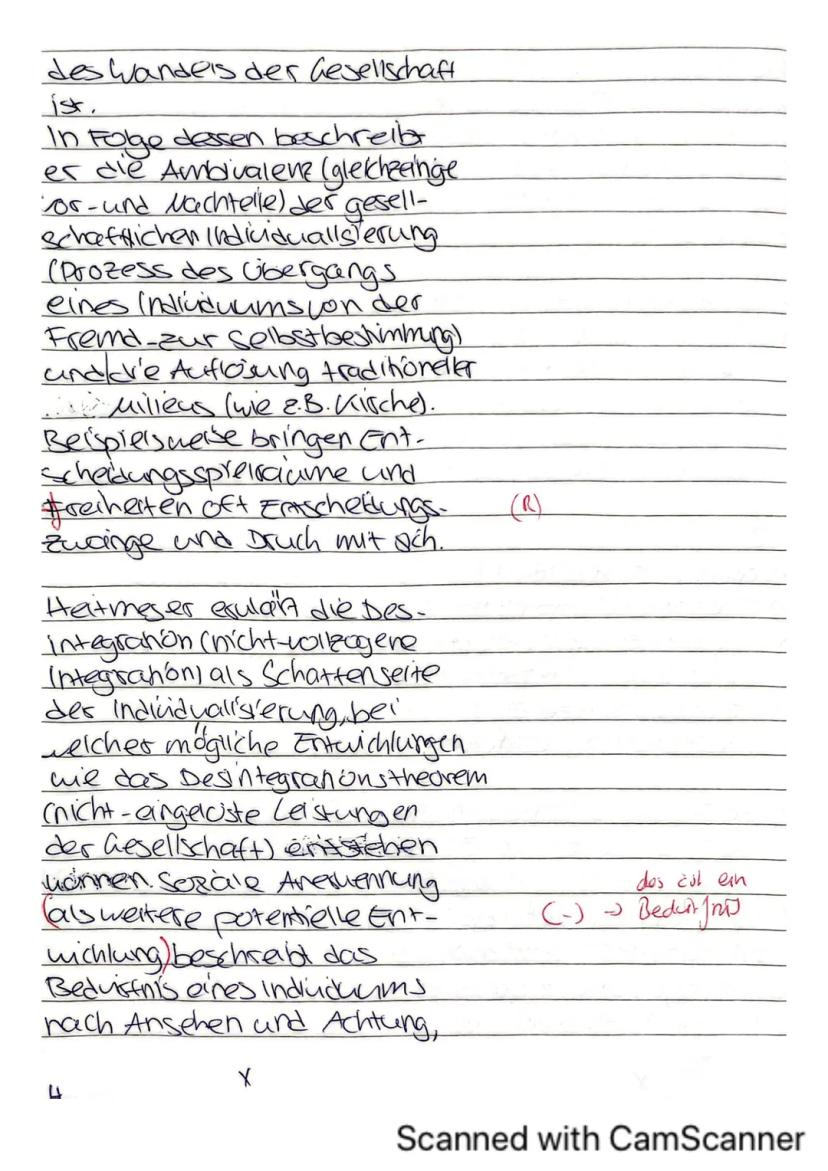 des Wandels der Gesellschaft
ist.
In Folge dessen beschreibt
er die Ambivalenz (gleichzeitige
Vor- und Nachteile) der gesell-
schaftlichen Individualisierung
(Prozess des Übergangs
eines Individuums von der
Fremd- zur Selbstbestimmung)
und die Auflösung traditioneller
Milieus (wie z.B. Kirche).
Beispielsweise bringen Ent-
scheidungsspielräume und
Freiheiten oft Entscheidungs- (R)
zwänge und Druck mit sich.
Heitmeyer erklärt die Des-
integration (nicht-vollzogene
Integration) als Schattenseite
der Individualisierung, bei
welcher mögliche Entwicklungen
wie das Desintegrationstheorem
(nicht-eingelöste Leistungen
der Gesellschaft) entstehen
können. Soziale Anerkennung das ist ein
(als weitere potentielle Ent- (-) → Bedürfnis
wicklung) beschreibt das
Bedürfnis eines Individuums
nach Ansehen und Achtung,
4 X
Scanned with CamScanner